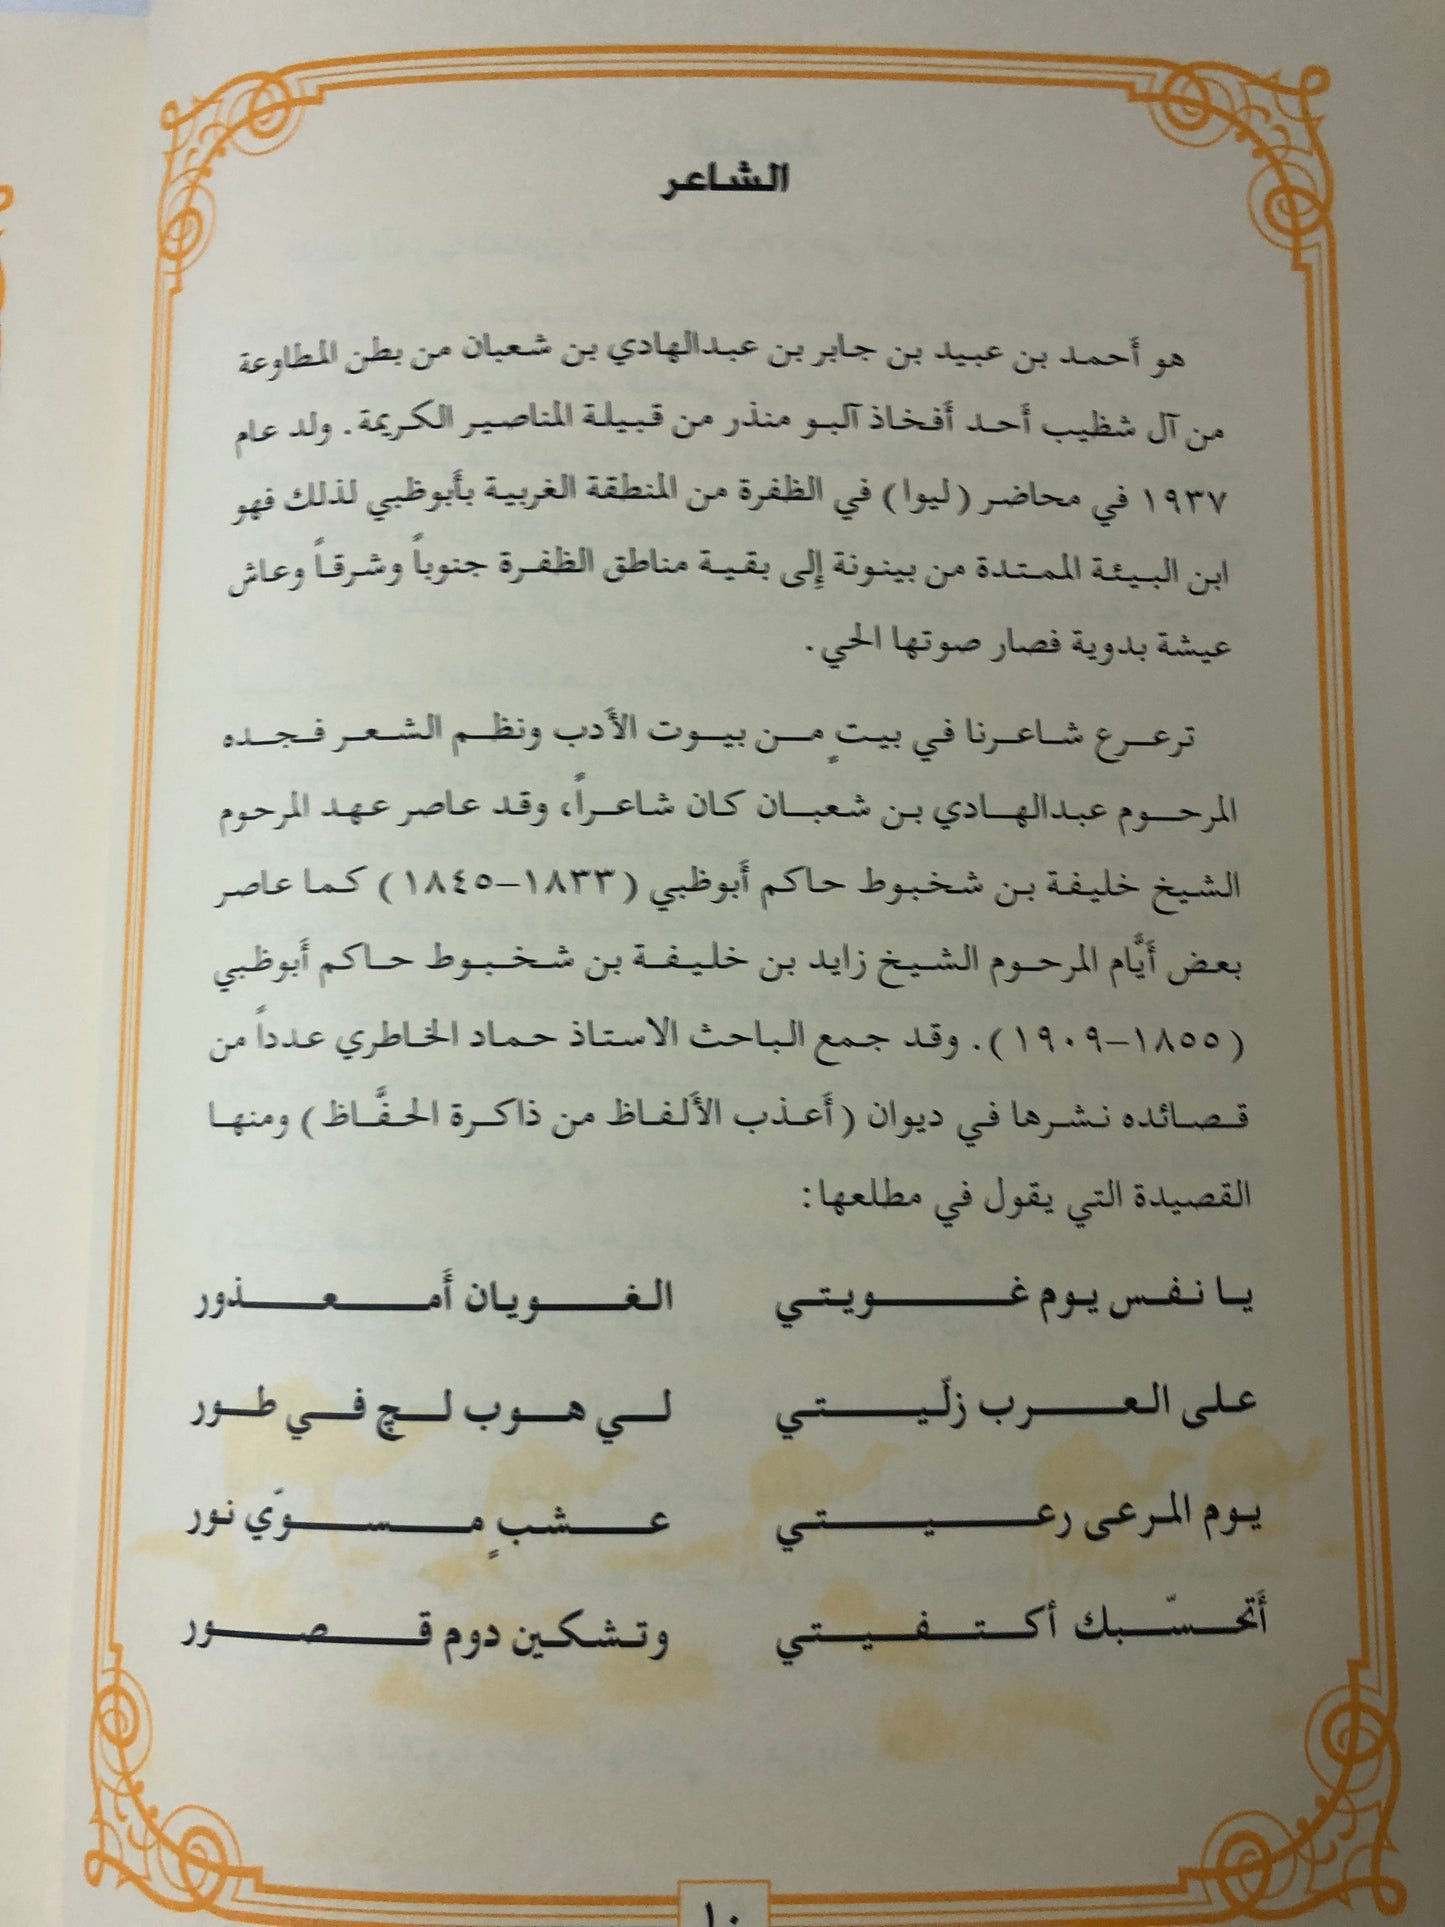 الشاعر
هو أحمد بن عبيد بن جابر بن عبدالهادي بن شعبان من بطن المطاوعة
من آل شظيب أحد أفخاذ آلبو منذر من قبيلة المناصير الكريمة. ولد عام
١٩٣٧ في محاضر (ليوا) في الظفرة من المنطقة الغربية بأبوظبي لذلك فهو
ابن البيئة الممتدة من بينونة إلى بقية مناطق الظفرة جنوباً وشرقاً وعاش
عيشة بدوية فصار صوتها الحي.
ترعرع شاعرنا في بيتٍ من بيوت الأدب ونظم الشعر فجده
المرحوم عبدالهادي بن شعبان كان شاعراً، وقد عاصر عهد المرحوم
الشيخ خليفة بن شخبوط حاكم أبوظبي (١٨٣٣–١٨٤٥) كما عاصر
بعض أيَّام المرحوم الشيخ زايد بن خليفة بن شخبوط حاكم أبوظبي
(١٨٥٥–١٩٠٩). وقد جمع الباحث الاستاذ حماد الخاطري عدداً من
قصائده نشرها في ديوان (أعذب الألفاظ من ذاكرة الحفَّاظ) ومنها
القصيدة التي يقول في مطلعها:
يا نفس يوم غويتي الغويان أمعذور
على العرب زلّيتي لي هوب لچ في طور
يوم المرعى رعيتي عشبٍ مسوّي نور
أتحسّبك أكتفيتي وتشكين دوم قصور
١٠